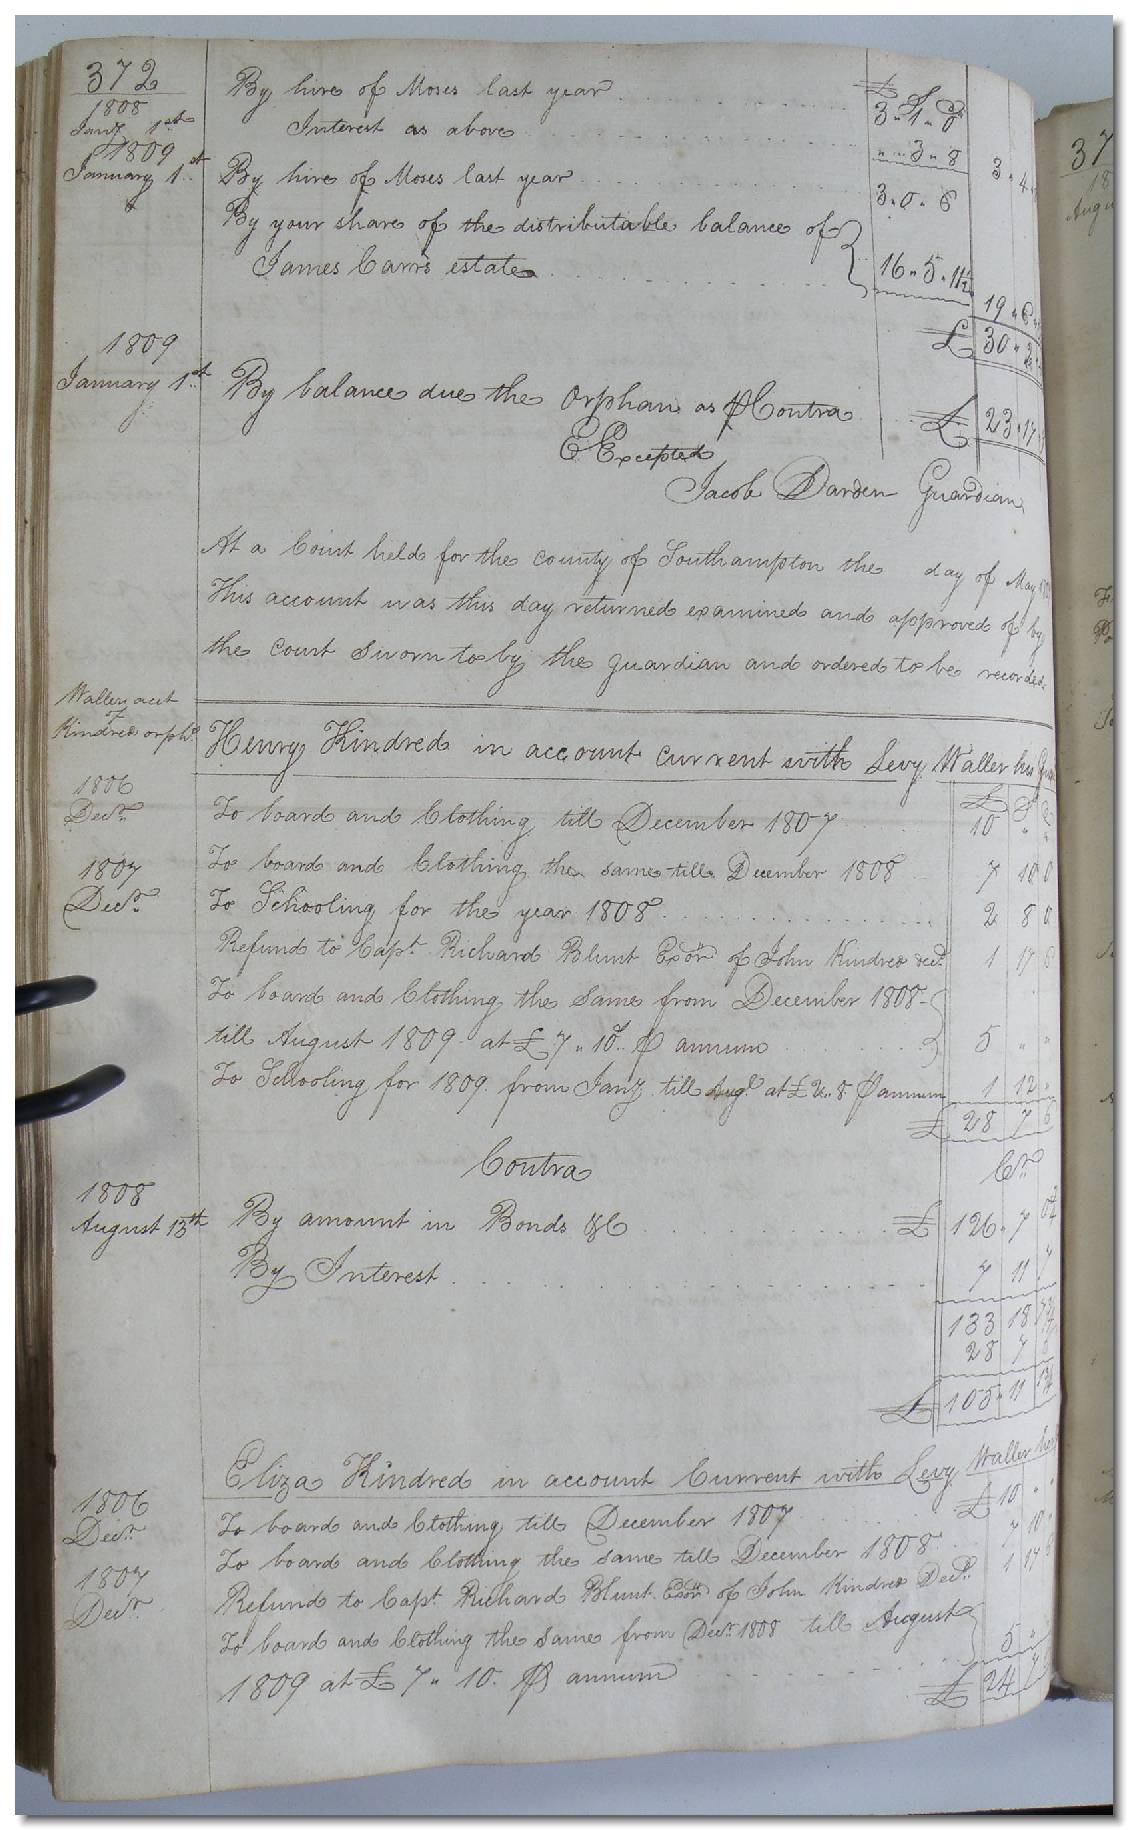 372
1808
Jany 1st
By hire of Moses last year £ S D
3 " 1 " 0
Interest as above " " 3 " 8
3 " 4
1809
January 1st
By hire of Moses last year 3 " 0 " 6
By your share of the distributable balance of
James Carrs estate 16 " 5 " 11½
19 " 6
£ 30 " 2
1809
January 1st
By balance due the Orphan as ⅌ Contra £ 23 " 17
E Excepted
Jacob Darden Guardian
At a Court held for the county of Southampton the day of May
This account was this day returned examined and approved of by
the court sworn to by the guardian and ordered to be recorded
Waller acct
of
Kindred orphs
Henry Kindred in account current with Levy Waller his
1806
Decr
£ S D
To board and Clothing till December 1807 10 " "
1807
Decr
To board and Clothing the same till December 1808 7 10 0
To Schooling for the year 1808 2 8 0
Refund to Capt Richard Blunt Exor of John Kindred decd 1 17 6
To board and Clothing the same from December 1808
till August 1809 at £ 7 " 10s ⅌ annum 5 " "
To Schooling for 1809 from Jany till Augt at £ 2 " 8 ⅌ annum 1 12 "
£ 28 7 6
Contra Cr
1808
August 13th
By amount in Bonds &C £ 126 " 7
By Interest 7 11 7
133 18
28 7 6
£ 105 " 11
Eliza Kindred in account Current with Levy Waller her
1806
Decr
To board and Clothing till December 1807 £ 10 " "
1807
Decr
To board and Clothing the same till December 1808 7 10 "
Refund to Capt Richard Blunt Exor of John Kindred Decd 1 17 6
To board and Clothing the same from Decr 1808 till August
1809 at £ 7 " 10 ⅌ annum 5 "
£ 24 7
37
18
Augu